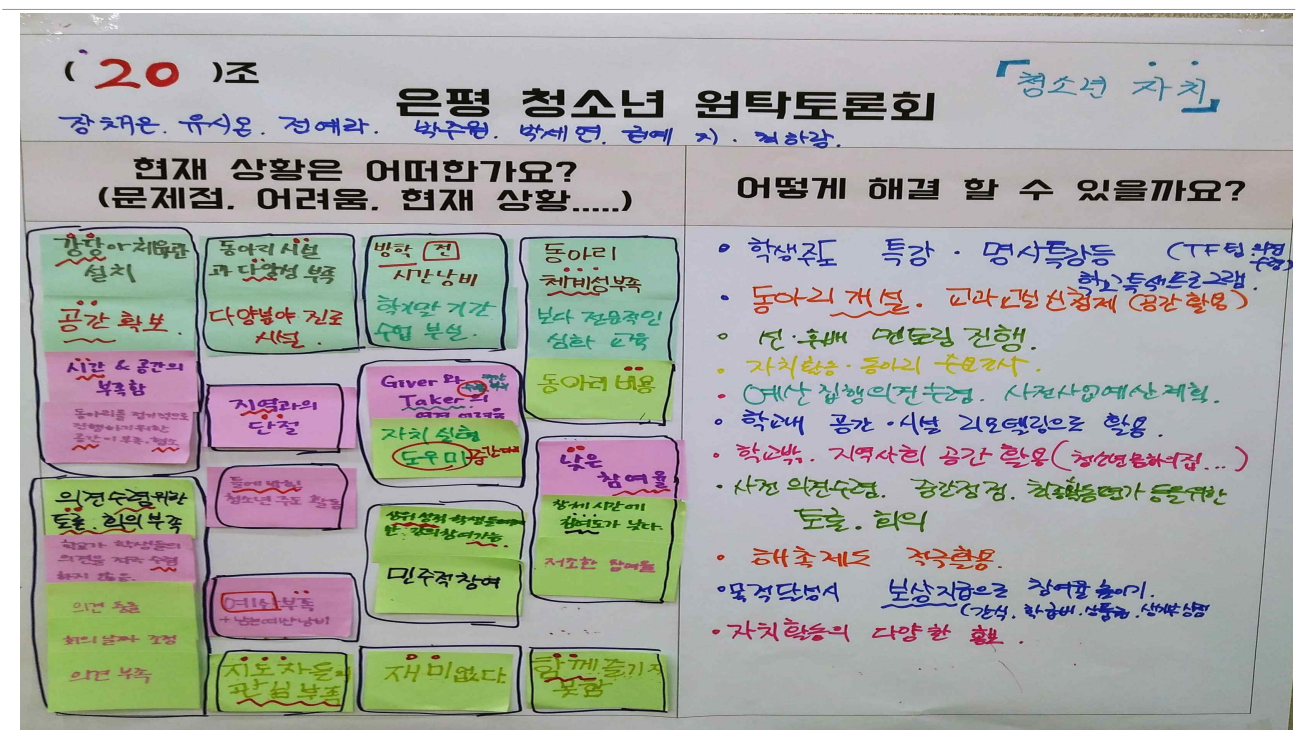 ( 20 )조
「청소년 자치」
은평 청소년 원탁토론회
장채은. 유시온. 전예라. 박주원. 박세연.
현재 상황은 어떠한가요?
(문제점, 어려움, 현재 상황.....)
강당이나 체육관
설치
공간 확보.
시간 & 공간의
부족함
동아리를 정기적으로
진행하기 위한
공간이 부족. 협소
의견수렴 위한
토론. 회의 부족
학교가 학생들의
의견을 적극 수렴
하지 않음.
의견 충돌
회의 날짜 조정
의견 부족
동아리 시설
과 다양성 부족
다양분야 진로
시설.
지역과의
단절
청소년 주도 활동
예산 부족
+ 남는예산낭비
지도자들의
관심 부족
방학 전
시간낭비
학기말 기간
수업 부실.
Giver 와
Taker의
자치 실현
도우미
민주적 참여
재미없다
동아리
체계성부족
보다 전문적인
심화 교육
동아리 비용
낮은
참여율
참여도가 낮다.
저조한 참여율
함께 즐기지
못함
어떻게 해결 할 수 있을까요?
• 학생주도 특강 · 명사특강등 (TF팀
• 동아리 개설. 교과교실신청제 (공간 활용)
• 선·후배 멘토링 진행.
• 자치활동 · 동아리 수요조사.
• 예산 집행의견수렴. 사전사업예산계획.
• 학교내 공간 · 시설 리모델링으로 활용.
• 학교밖. 지역사회 공간 활용(청소년문화의집...)
• 사전 의견수렴. 중간점검. 최종활동평가 등을위한
토론. 회의
• 해촉제도 적극활용.
• 목적달성시 보상지급으로 참여율 높이기.
(간식. 학급비. 상품권.
• 자치활동의 다양한 홍보.